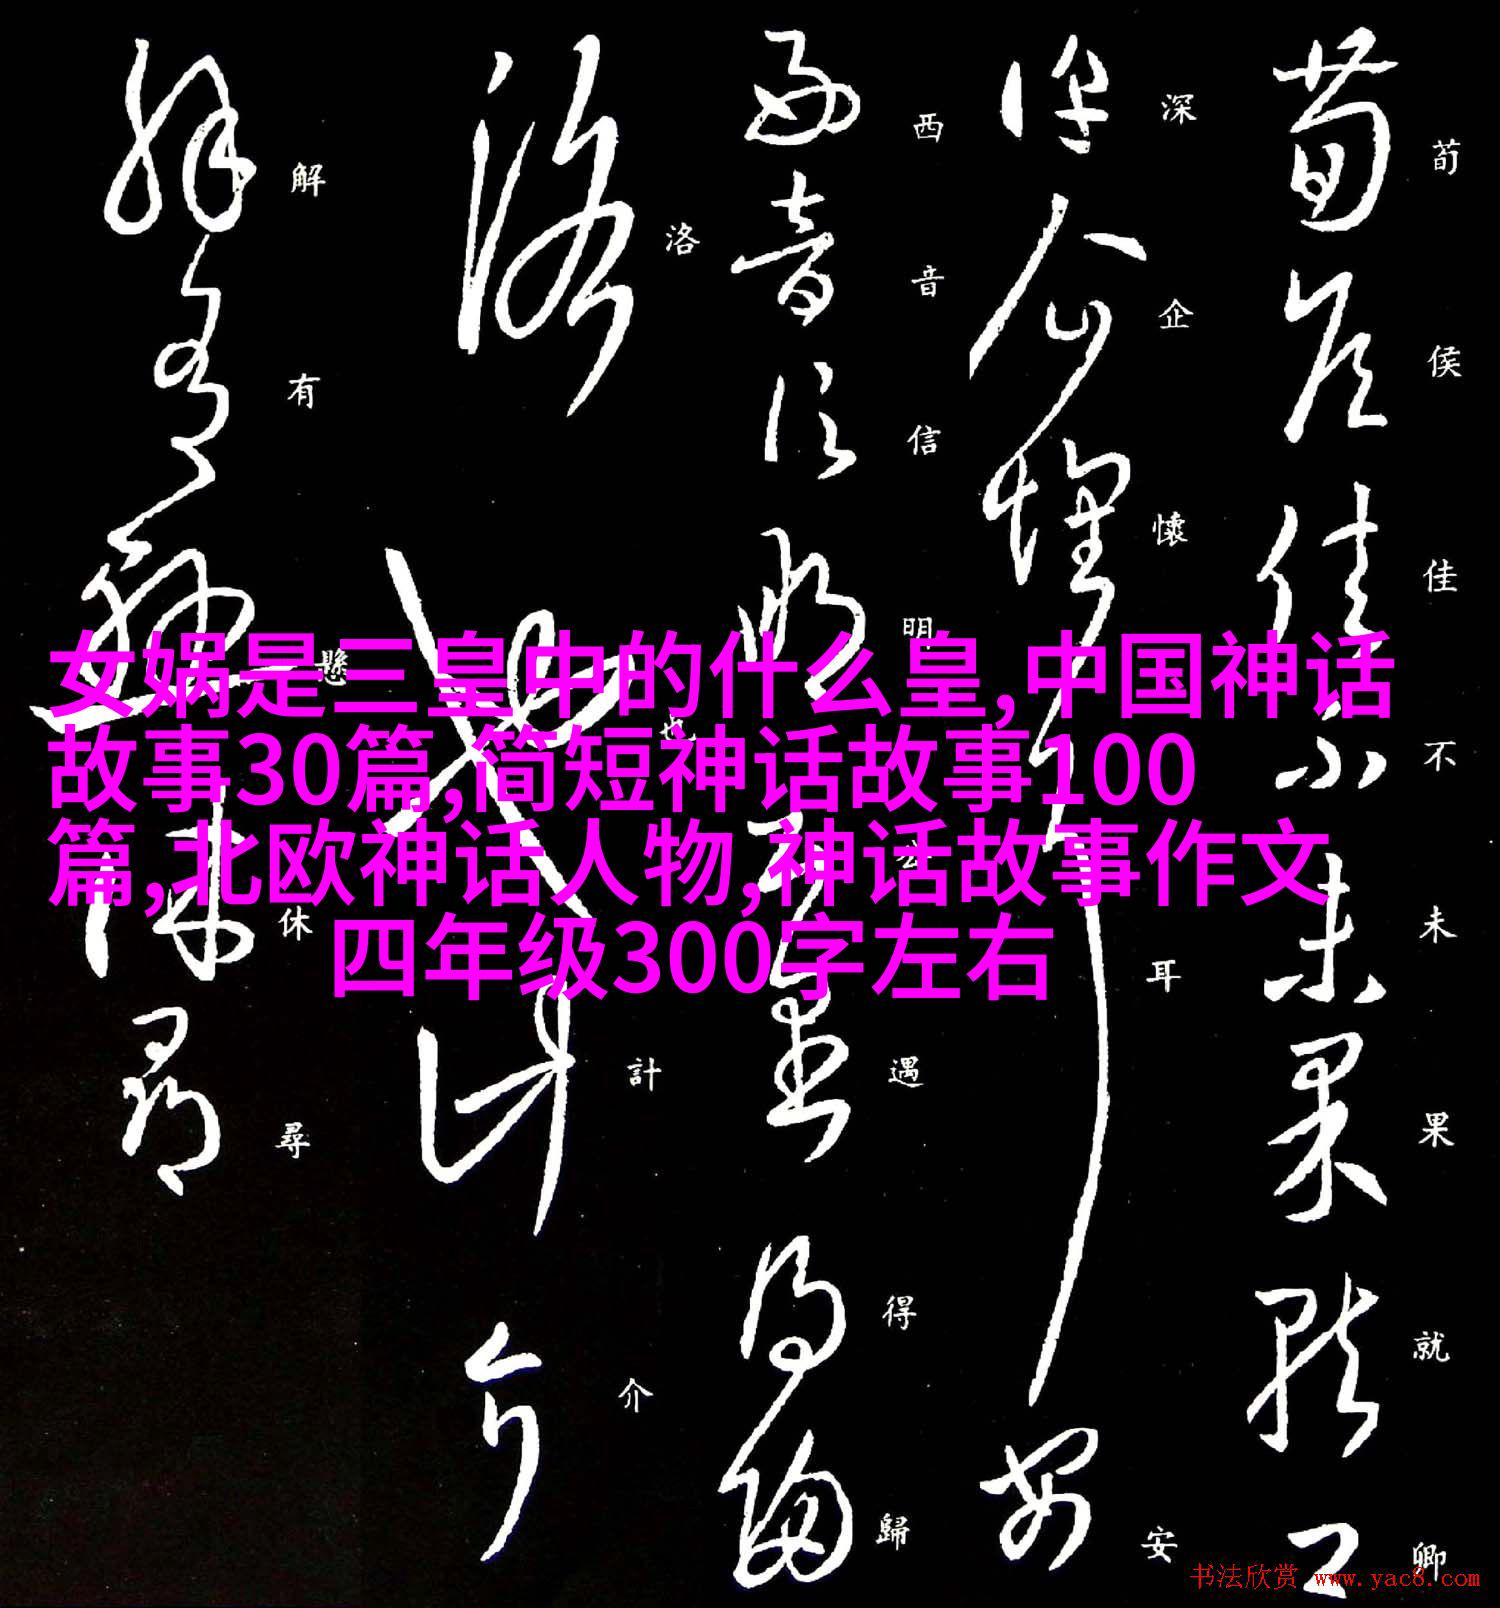 荀侯佳不未果就卿
深企懷耳安
西音信明公遇得歸
洛也計介
解有懸休尋
女娲是三皇中的什么皇,中国神话
故事30篇,简短神话故事100
篇,北欧神话人物,神话故事作文
四年级300字左右
书法欣赏 www.yac8.com